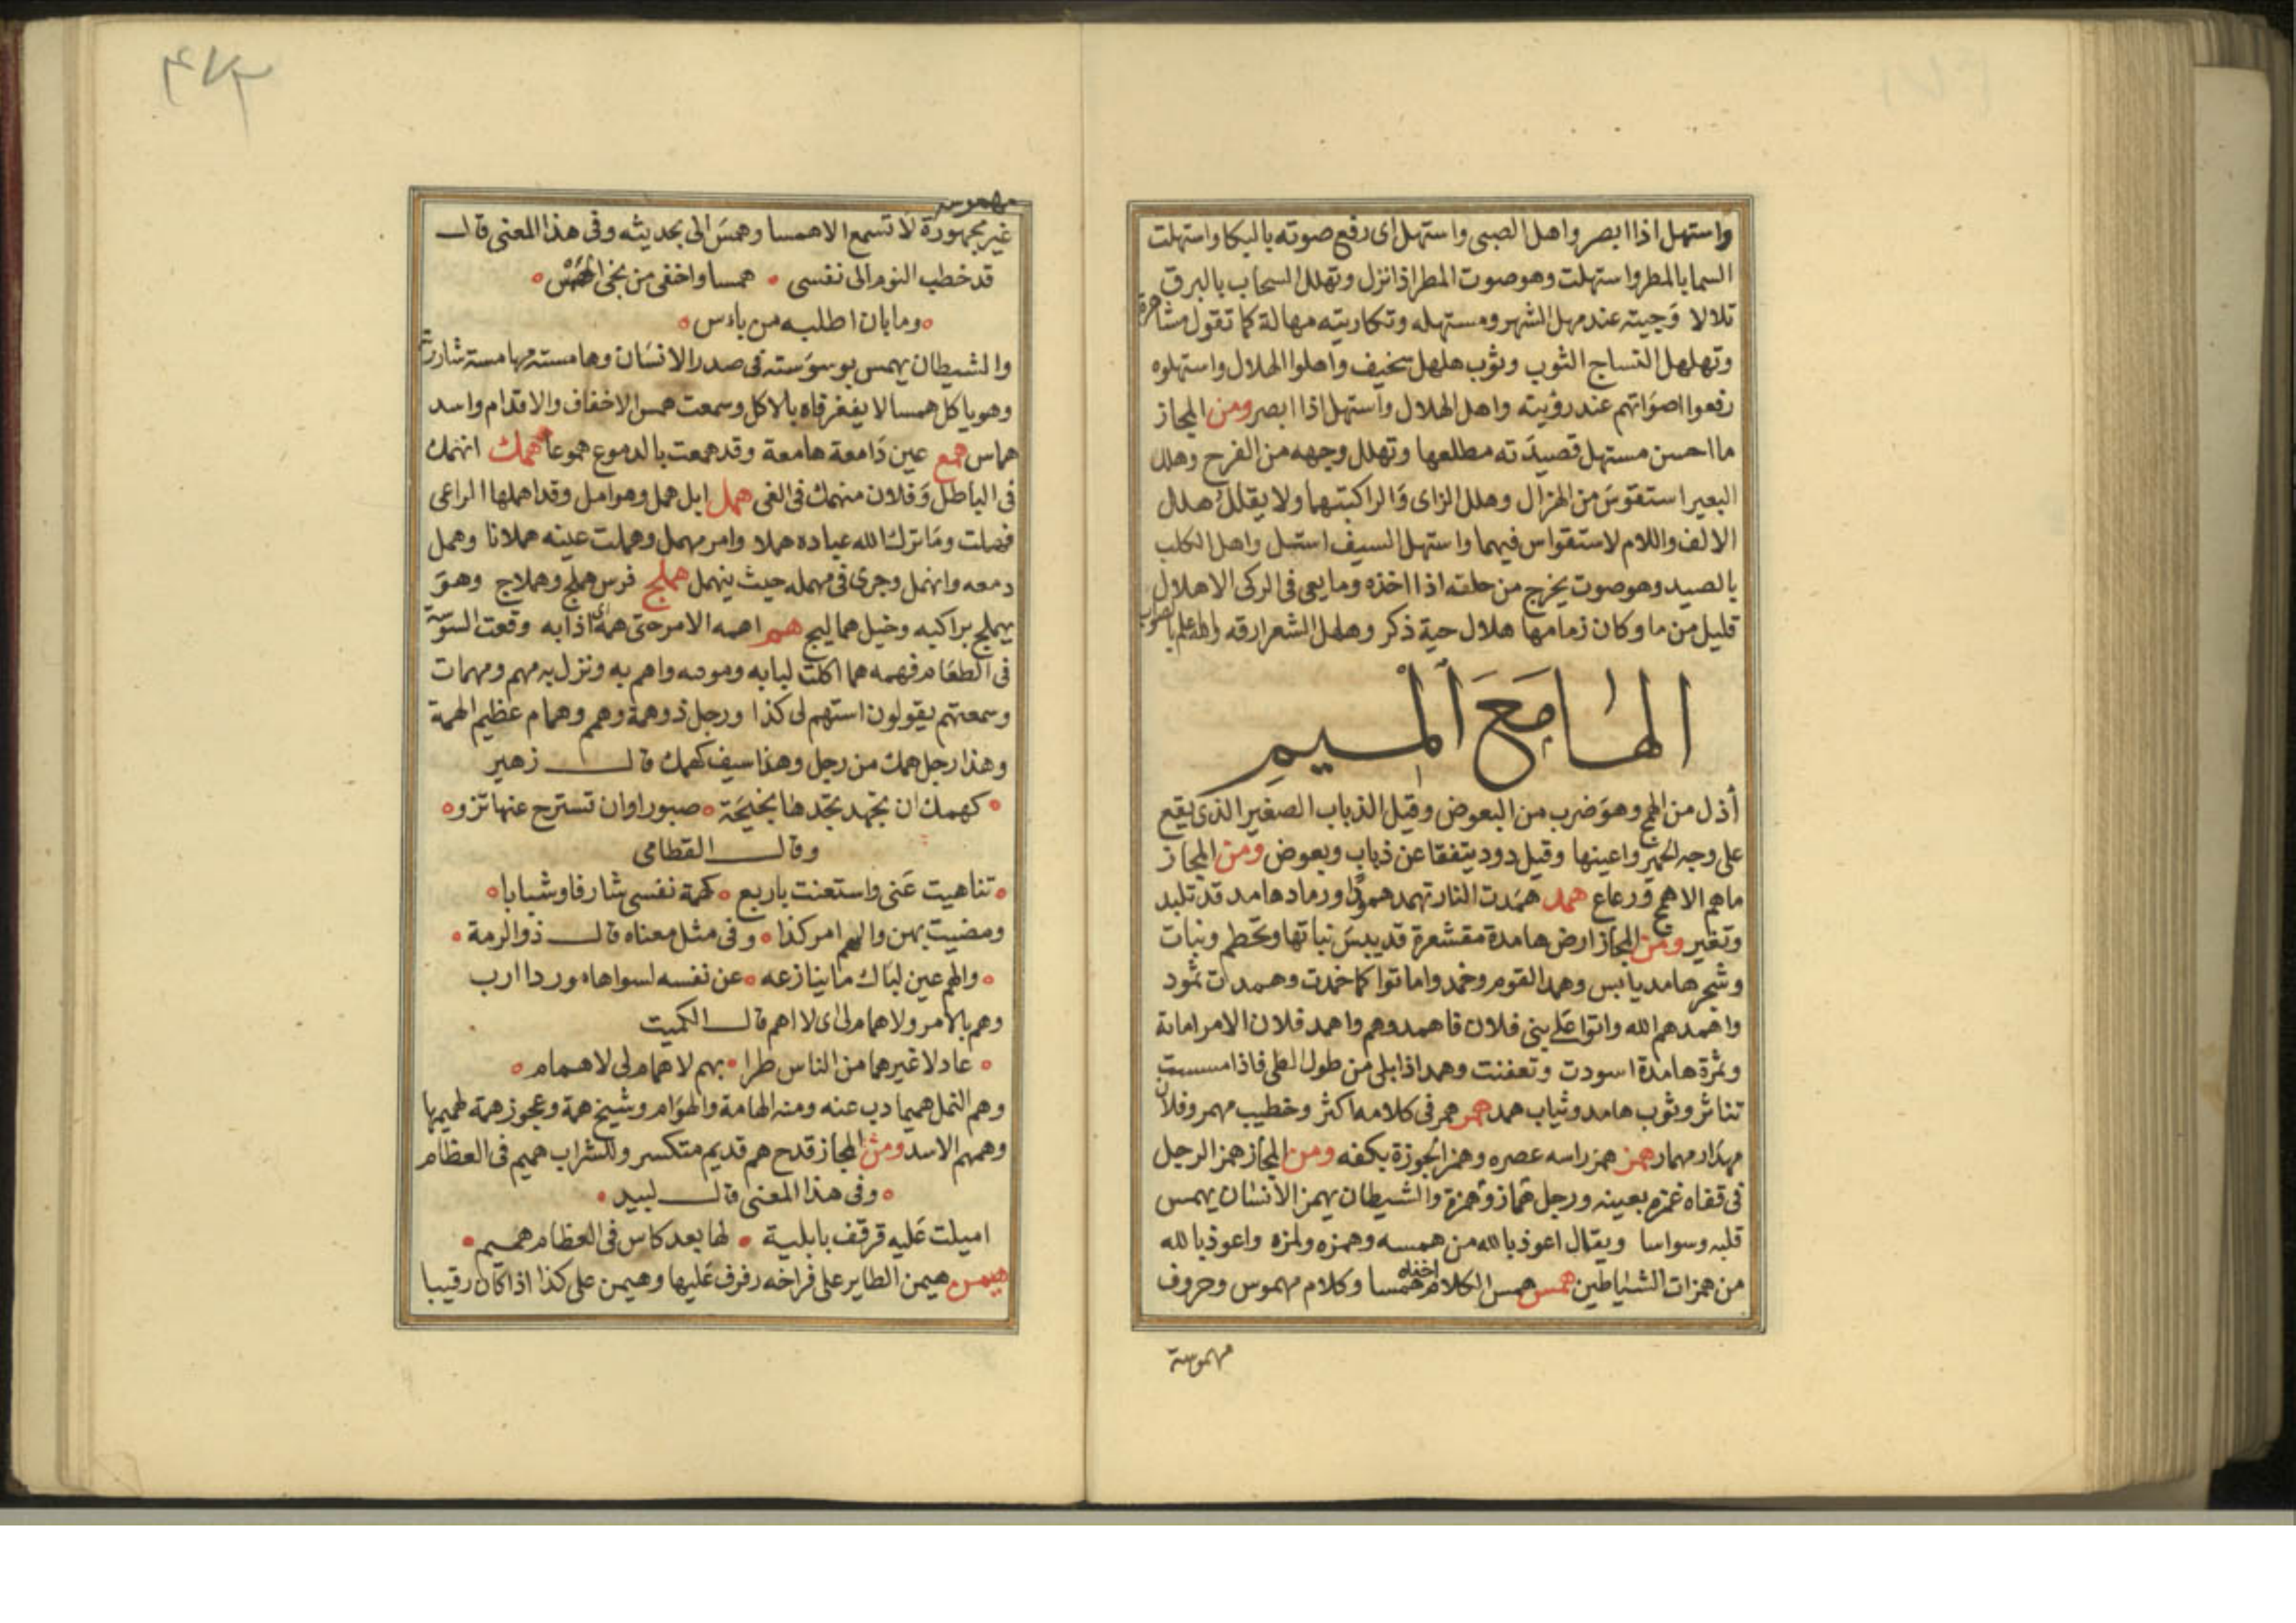 واستهل اذا ابصر واهل الصبى واستهل اى رفع صوته بالبكا واستهلت
السما بالمطر واستهلت وهو صوت المطر اذا نزل وتهلل السحاب بالبرق
تلالا وجيته عند مهل الشهر ومستهله وتكاريته مهالة كما تقول مشاهرة
وتهلهل النساج الثوب وثوب هلهل سخيف واهلوا الهلال واستهلوه
رفعوا اصواتهم عند رؤيته واهل الهلال واستهل اذا ابصر ومن المجاز
ما احسن مستهل قصيدته مطلعها وتهلل وجهه من الفرح وهلل
البعير استقوس من الهزال وهلل الزاى والرا كتبتهما ولا يقال هلل
الالف واللام لاستقواس فيهما واستهل السيف استل واهل الكلب
بالصيد وهو صوت يخرج من حلقه اذا اخذه وما بقى فى الركى الا هلال
قليل من ما وكان زمامها هلال حية ذكر وهلهل الشعر ارقه والله اعلم بالصواب
الها مع الميم
أذل من الهمج وهو ضرب من البعوض وقيل الذباب الصغير الذى يقع
على وجه الحمير واعينها وقيل دود يتفقا عن ذباب وبعوض ومن المجاز
ما هم الا همج ورعاع همد همدت النار تهمد همودا ورماد هامد قد تلبد
وتغير ومن المجاز ارض هامدة مقشعرة قد يبس نباتها وتحطم ونبات
وشجر هامد يابس وهمد القوم وخمدوا ماتوا كما خمدت وهمدت ثمود
واهمدهم الله واتوا على بنى فلان فاهمدوهم واهمد فلان الامر اماته
وثمرة هامدة اسودت وتعفنت وهمد اذا بلى من طول الطى فاذا مسسته
تناثر وثوب هامد وثياب همد همر همر فى كلامه اكثر وخطيب مهمر وفلان
مهذار مهمار همز همز راسه عصره وهمز الجوزة بكفه ومن المجاز همز الرجل
فى قفاه غمزه بعينه ورجل هماز وهمزة والشيطان يهمز الانسان يهمس
قلبه وسواسا ويقال اعوذ بالله من همسه وهمزه ولمزه واعوذ بالله
من همزات الشياطين همس همس الكلام اخفاه همسا وكلام مهموس وحروف
مهموسة
۴۷۳
مهموسة
غير مجهورة لا تسمع الا همسا وهمس الى بحديثه وفى هذا المعنى قال
قد خطب النوم الى نفسى • همسا واخفى من نجى الهمس
وما بان اطلبه من باس
والشيطان يهمس بوسوسته فى صدر الانسان وهامسته مهامسة ساررته
وهو ياكل همسا لا يفغر فاه بالاكل وسمعت همس الاخفاف والاقدام واسد
هماس همع عين دامعة هامعة وقد همعت بالدموع هموعا همك انهمك
فى الباطل وفلان منهمك فى الغى همل ابل همل وهوامل وقد اهملها الراعى
فضلت وما ترك الله عباده هملا وامر مهمل وهملت عينه هملانا وهمل
دمعه وانهمل وجرى فى مهمله حيث ينهمل هملج فرس هملج وهملاج وهو
يهملج براكبه وخيل هماليج همم اهمه الامر حتى همه اى اذابه وقعت السوسة
فى الطعام فهمته هما اكلت لبابه واهم به ونزل به مهم ومهمات
وسمعتهم يقولون استهم لى كذا ورجل ذو همة وهمم وهمام عظيم الهمة
وهذا رجل همك من رجل وهذا سيف كهمك قال زهير
كهمك ان تجهد تجدها نجيحة • صبورا وان تسترح عنها تزو
وقال القطامى
تناهيت عنى واستعنت باربع • كهمة نفسى شارفا وشبابا
ومضيت بهن والهم امر كذا • وفى مثل معناه قال ذو الرمة
والهم عين لباك ما ينازعه • عن نفسه لسواها موردا ارب
وهم بالامر ولا همام لى اى لا اهم قال الكميت
عادلا غيرهما من الناس طرا • بهم لا همام لى لا همام
وهم النمل هميما دب عنه ومنه الهامة والهوام وشيخ همة وعجوز همة لهميهما
وهمهم الاسد ومن المجاز قدح هم قديم متكسر وللشراب هميم فى العظام
وفى هذا المعنى قال لبيد
اميلت عليه قرقف بابلية • لها بعد كاس فى العظام هميم
هيمن هيمن الطاير على فراخه رفرف عليها وهيمن على كذا اذا كان رقيبا